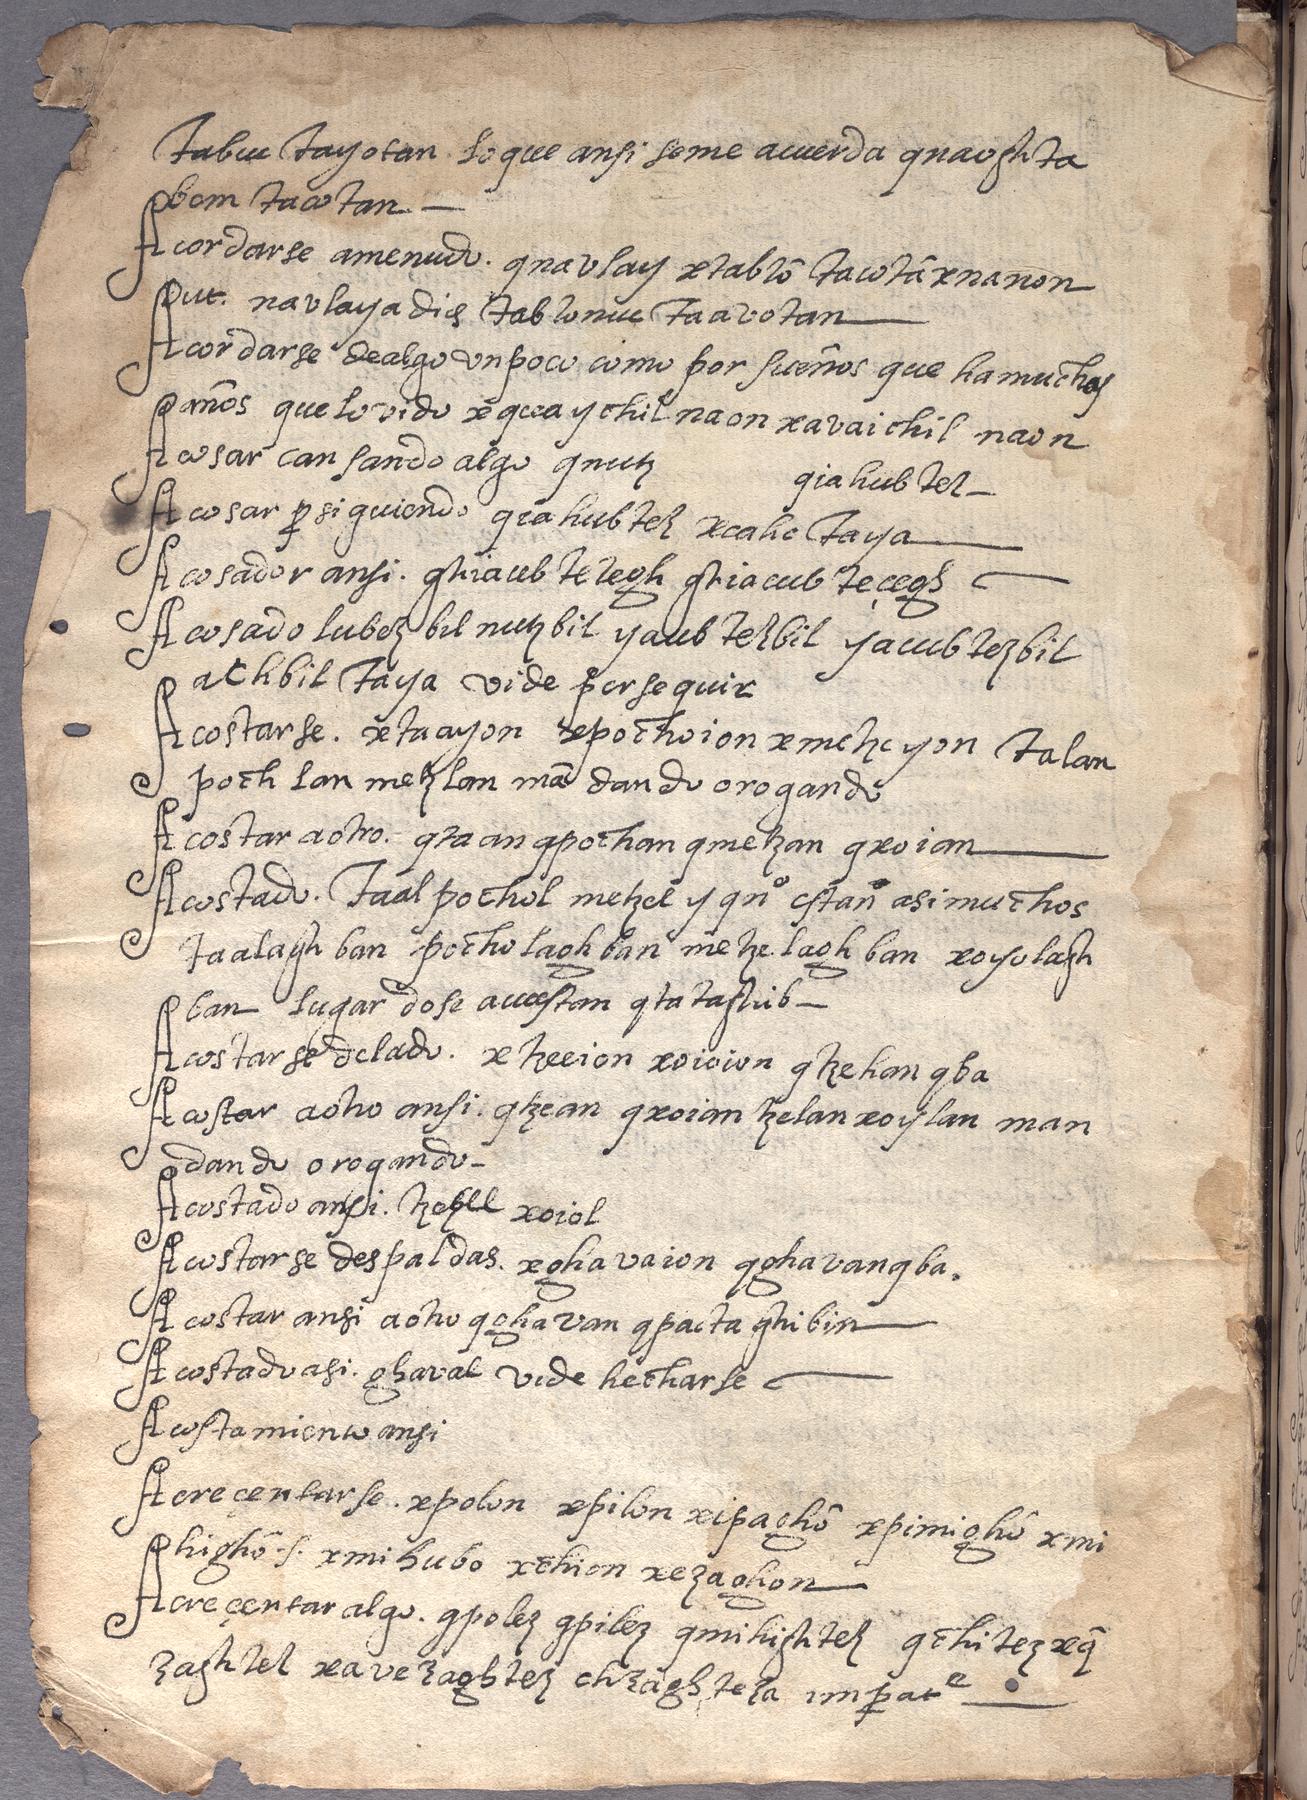 tabuc tayotan lo que ansi se me acuerda qnaoghta
bem tacotan
Acordarse amenudo. qnavlay xtablō tacotā xnanon
put. navlaya dics tablonuc taavotan
Acordarse de algo vn poco como por sueños que ha muchos
años que lo vido xquaychil naon xavaichil naon
Acosar cansando algo qnutz qiahubtez
Acosar p̱siguiendo qiahubtez xcahc taya
Acosador ansi. ghiacub tezegh ghiacub teçegh
Acosado lubez bil nutzbil yaub tezbil yacub tezbil
achbil taya vide perseguir
Acostarse. xtaayon xpochoion xmetzeyon talan
poch lan metzlan mādando o rogando
Acostar a otro. qtaan qpochan qmetzan qxoian
Acostado. taal pochol metzel y qn⁰ estan asi muchos
taalagh ban pocholagh ban metzelagh ban xoyolagh
ban lugar do se acuestan qtataghib
Acostarse de lado. xtzeeion xoioion qtzehan qba
Acostar a otro ansi. qtzean qxoian tzelan xoylan man
dando o rogando
Acostado ansi. xoiol
Acostarse despaldas. xghavaion qghavan qba.
Acostar ansi a otro qghavan qpacta ghibin
Acostado asi. ghaval vide hecharse
Acostamiento ansi
Acreçentarse. xpolon xpilon xipaghō xpimighō xmi
highō .s. xmihubo xchion xezaghon
Acreçentar algo. qpolez qpilez qmihightez qchitez xq̄
zaghtez xavezaghtez chzaghteza imp̱atᵉ